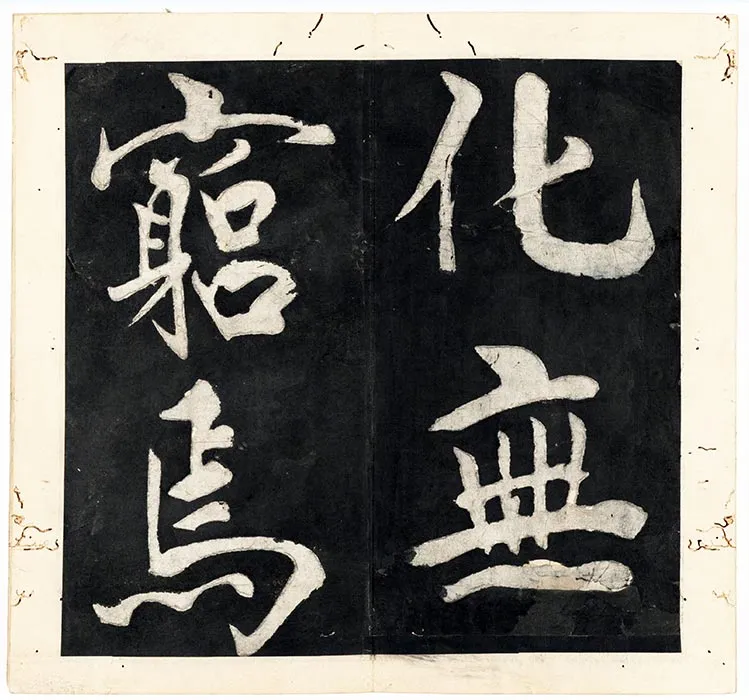 化無
窮焉